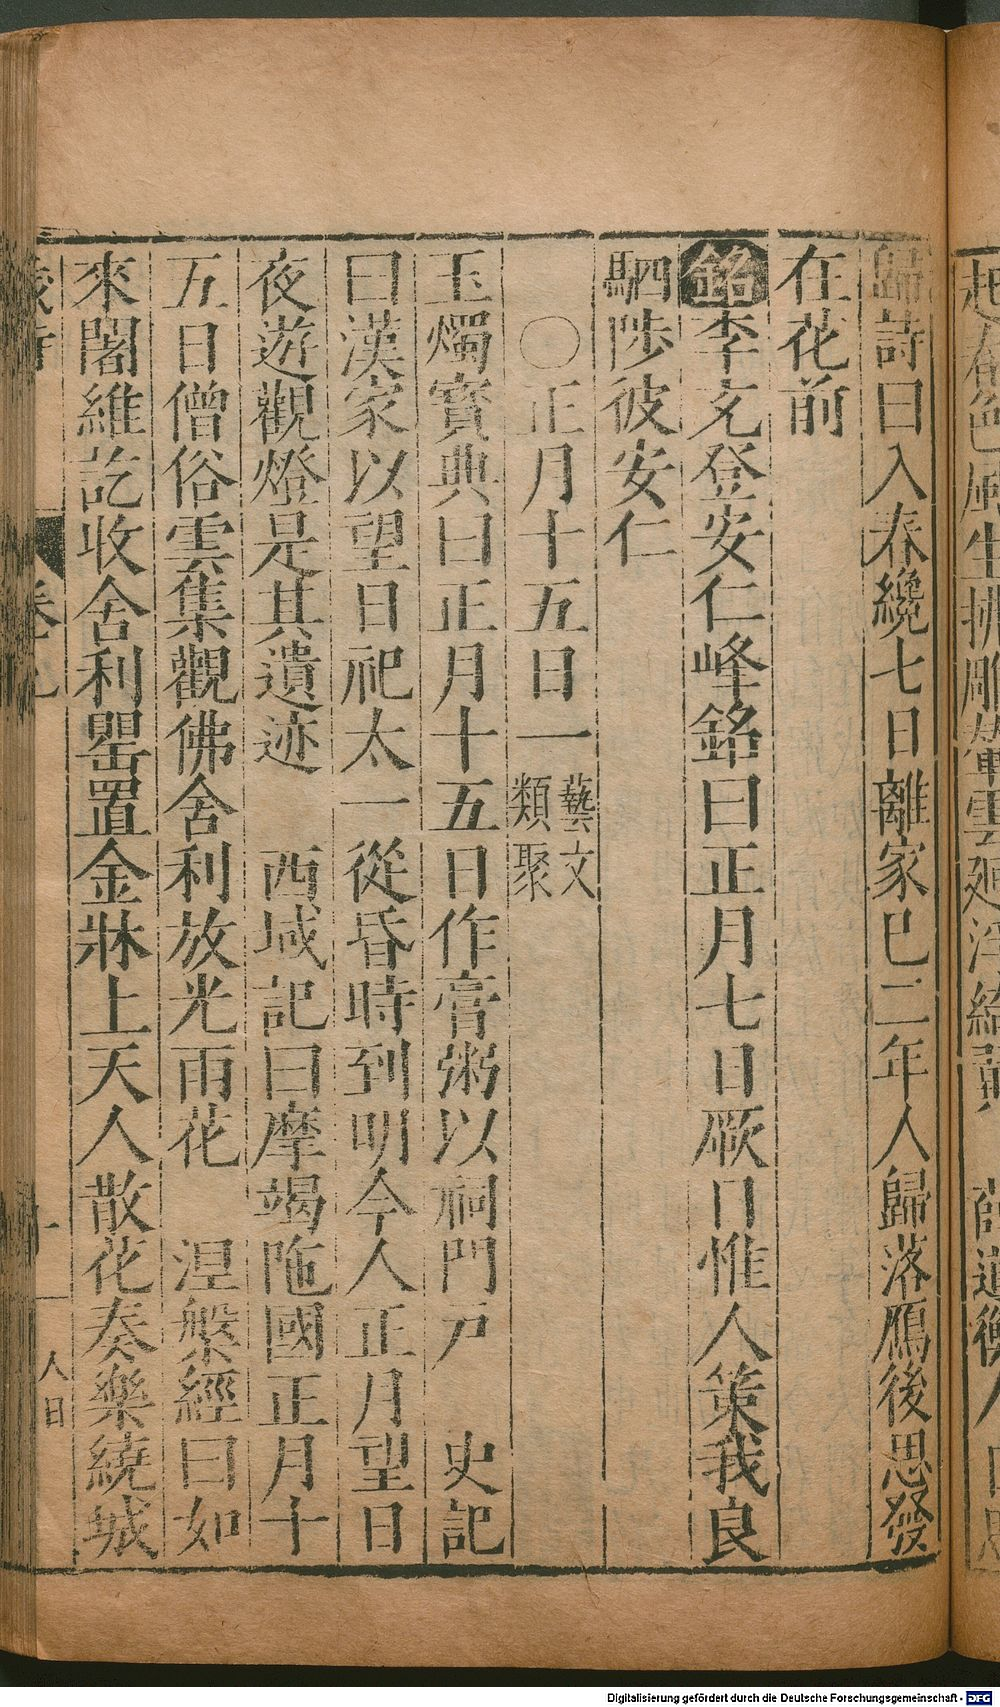 歸詩曰入春纔七日離家巳二年人歸落鴈後思發
在花前
銘李充登安仁峰銘曰正月七日厥日惟人策我良
駟陟彼安仁
〇正月十五日一藝文類聚
玉燭寶典曰正月十五日作膏粥以祠門戸 史記
曰漢家以望日祀太一從昏時到明今人正月望日
夜遊觀燈是其遺迹 西域記曰摩竭陁國正月十
五日僧俗雲集觀佛舍利放光雨花 涅槃經曰如
來闍維訖收舍利罌置金牀上天人散花奏樂繞城
人日
Digitalisierung gefördert durch die Deutsche Forschungsgemeinschaft - DFG